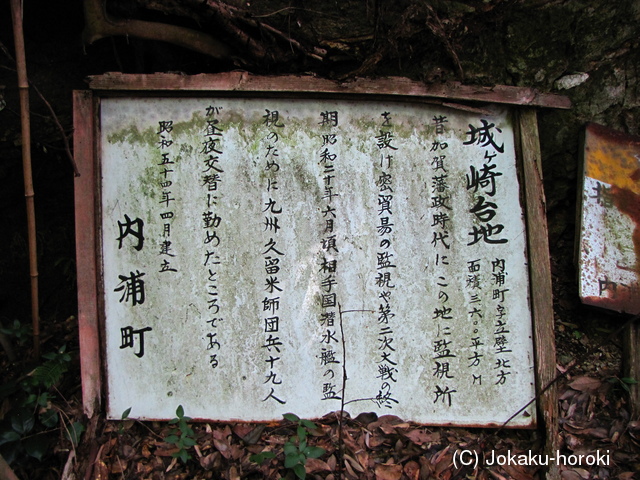 城ヶ崎台地
内浦町字立壁北方
面積三六〇〇平方M
昔加賀藩政時代にこの地に監視所
を設け密貿易の監視や第二次大戦の終
期昭和二十年六月頃相手国潜水艦の監
視のために九州久留米師団兵十九人
が昼夜交替に勤めたところである
昭和五十四年四月建立
内浦町
(C) Jokaku-horoki